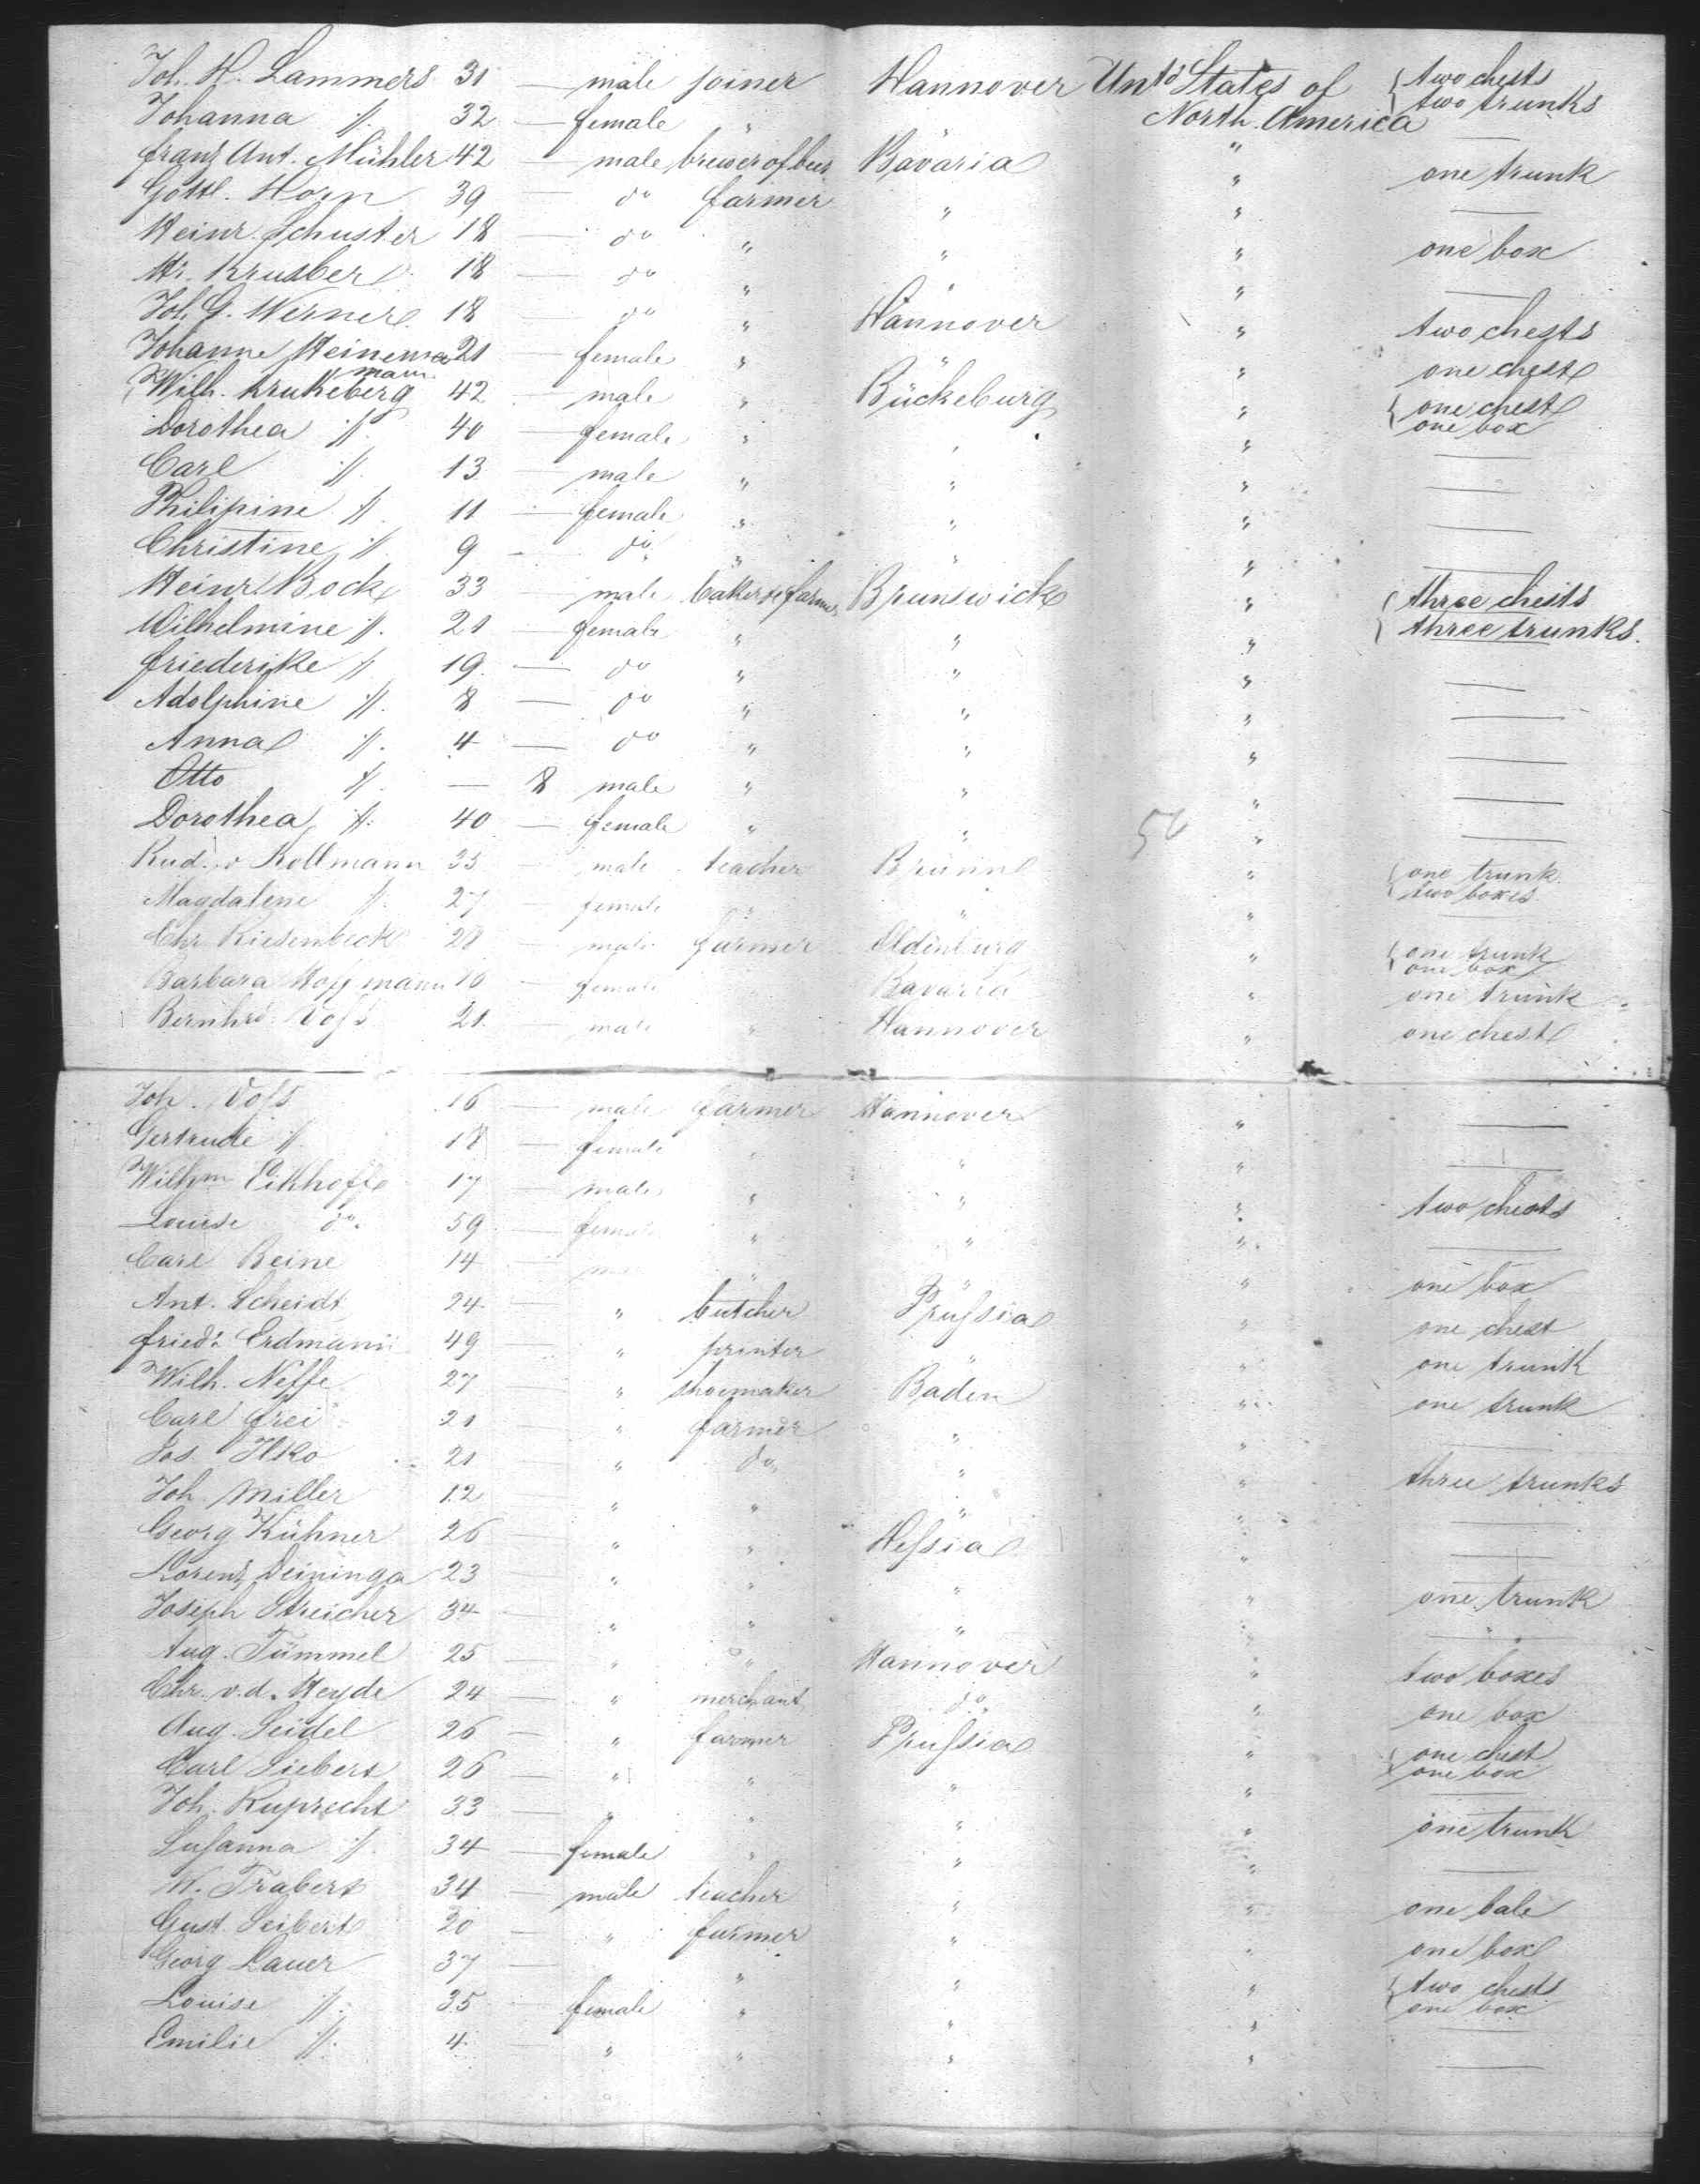 Joh. H. Lammers 31 — male joiner Hannover Untd States of { two chests
Johanna ". 32 — female " " North America { two trunks
Franz Ant. Mühler 42 — male brewer of beer Bavaria " —
Gottl. Horn 39 — do farmer " " one trunk
Heinr. Schuster 18 — do " " " —
Hr. Krusber 18 — do " " " one box
Joh. G. Werner 18 — do " Hannover " —
Johanne Heinema 21 — female " " " two chests
mann
Wilh. Krukeberg 42 — male " Bückeburg " one chest
Dorothea ". 40 — female " " " { one chest
one box
Carl ". 13 — male " " " —
Philipine " 11 — female " " " —
Christine " 9 — do " " " —
Heinr. Bock 33 — male baker & farmer Brunswick " { three chests
Wilhelmine ". 21 — female " " " { three trunks.
Friederike " 19 — do " " " —
Adolphine ". 8 — do " " " —
Anna ". 4 — do " " " —
Otto ". — 8 male " " " —
Dorothea ". 40 — female " " 56 " —
Rud. v Kollmann 35 — male teacher Brünn " { one trunk
two boxes
Magdalene ". 27 — female " " "
Chr. Riesenbeck 28 — male farmer Oldenburg " { one trunk
one box
Barbara 10 — female Bavaria " one trunk
Bernhrd. Voss 21 — male " Hannover " one chest
Joh. Voss 16 — male farmer Hannover " —
Gertrude " 18 — female " " " —
Wilhm Eikhoff 17 — male " " " two chests
Louise do. 59 — female " " " —
Carl Beine 14 — " " " one box
Ant. Scheidt 24 — " butcher Prussia " one chest
Friedr. Erdmann 49 — " printer " " one trunk
Wilh. Neffe 27 — " shoemaker Baden " one trunk
Carl Frei 21 — " farmer " " —
Jos. Ilko 21 — " do " " three trunks
Joh. Miller 12 — " " " " —
Georg Kühner 26 — " " Hessia " —
Lorenz Deininga 23 — " " " " one trunk
Joseph Streicher 34 — " " " " —
Aug. Tümmel 25 — " " Hannover " two boxes
Chr. v. d. Heyde 24 — " merchant do. " one box
Aug. Seidel 26 — " farmer Prussia " { one chest
one box
Carl Siebert 26 — " " " " —
Joh. Ruprecht 33 — " " " " one trunk
Susanna ". 34 — female " " " —
H. Trabert 34 — male teacher " " one bale
Gust. Seibert 20 — " farmer " " one box
Georg Lauer 37 — " " " { two chests
one box
Louise ". 35 — female " " " —
Emilie ". 4 " " " " —